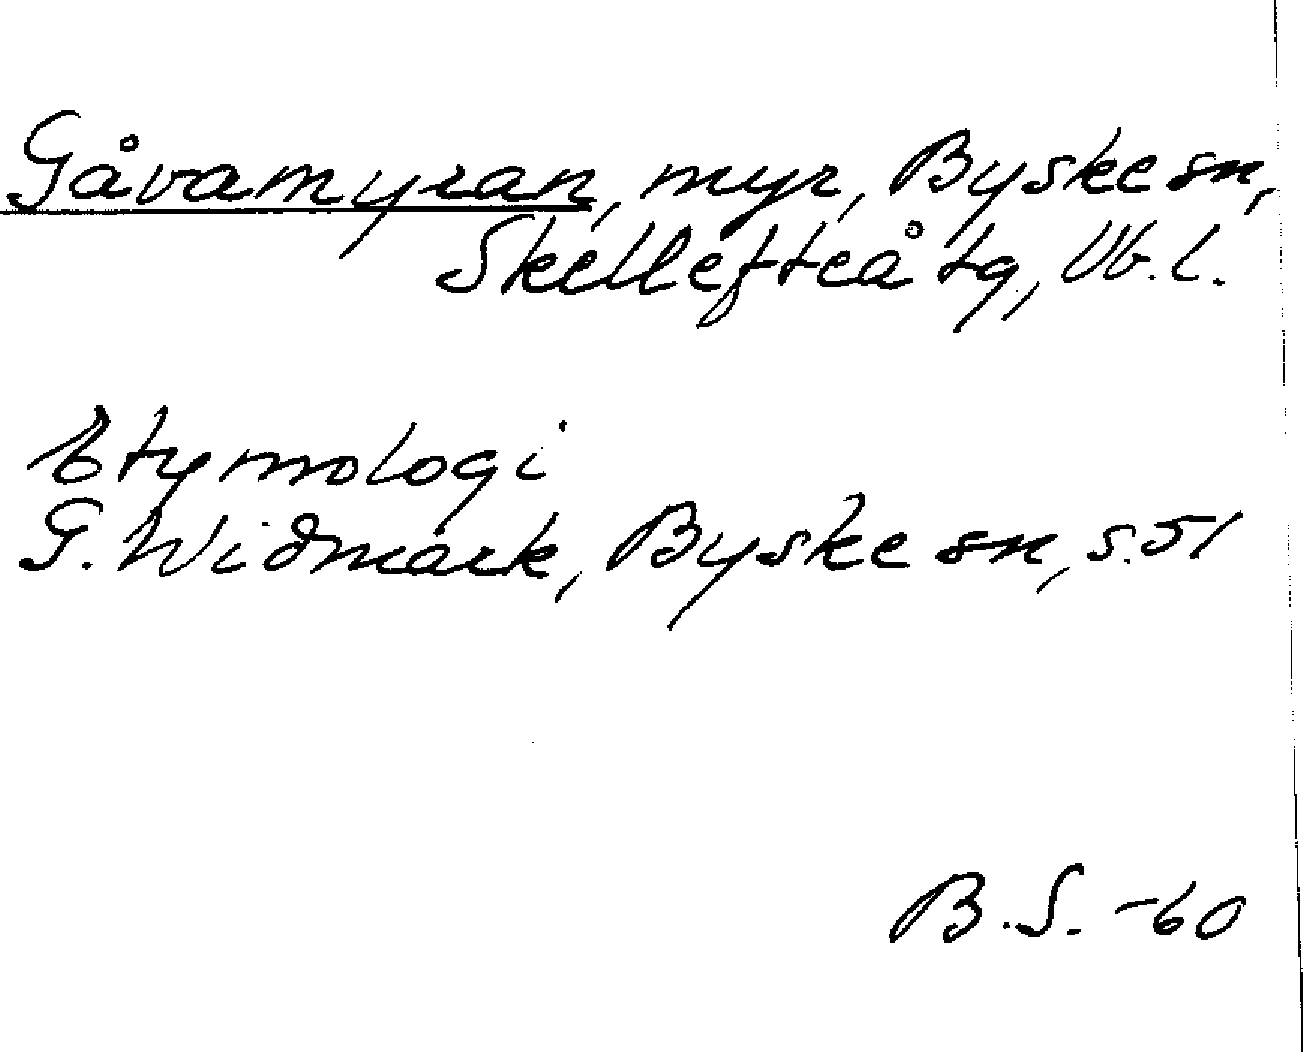 Gåvamyran, myr, Byske sn,
Skellefteå tg, Vb. l.
Etymologi
G. Widmark, Byske sn, s. 51
B. S. -60